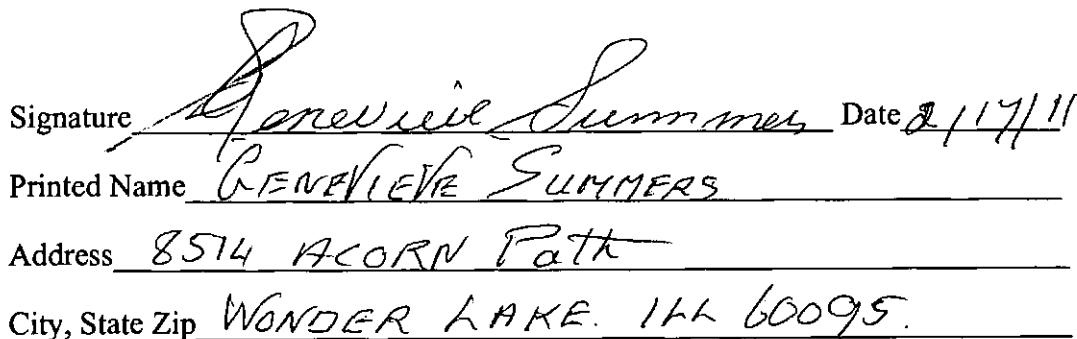 Signature Genevieve Summers Date 2/17/11
Printed Name GENEVIEVE SUMMERS
Address 8514 ACORN Path
City, State Zip WONDER LAKE. ILL 60095.